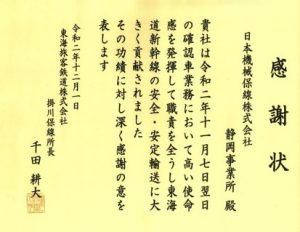 感謝状
日本機械保線株式会社
静岡事業所 殿
貴社は令和二年十一月七日翌日
の確認車業務において高い使命
感を発揮して職責を全うし東海
道新幹線の安全・安定輸送に大
きく貢献されました
その功績に対し深く感謝の意を
表します
令和二年十二月一日
東海旅客鉄道株式会社
掛川保線所長
千田 耕大